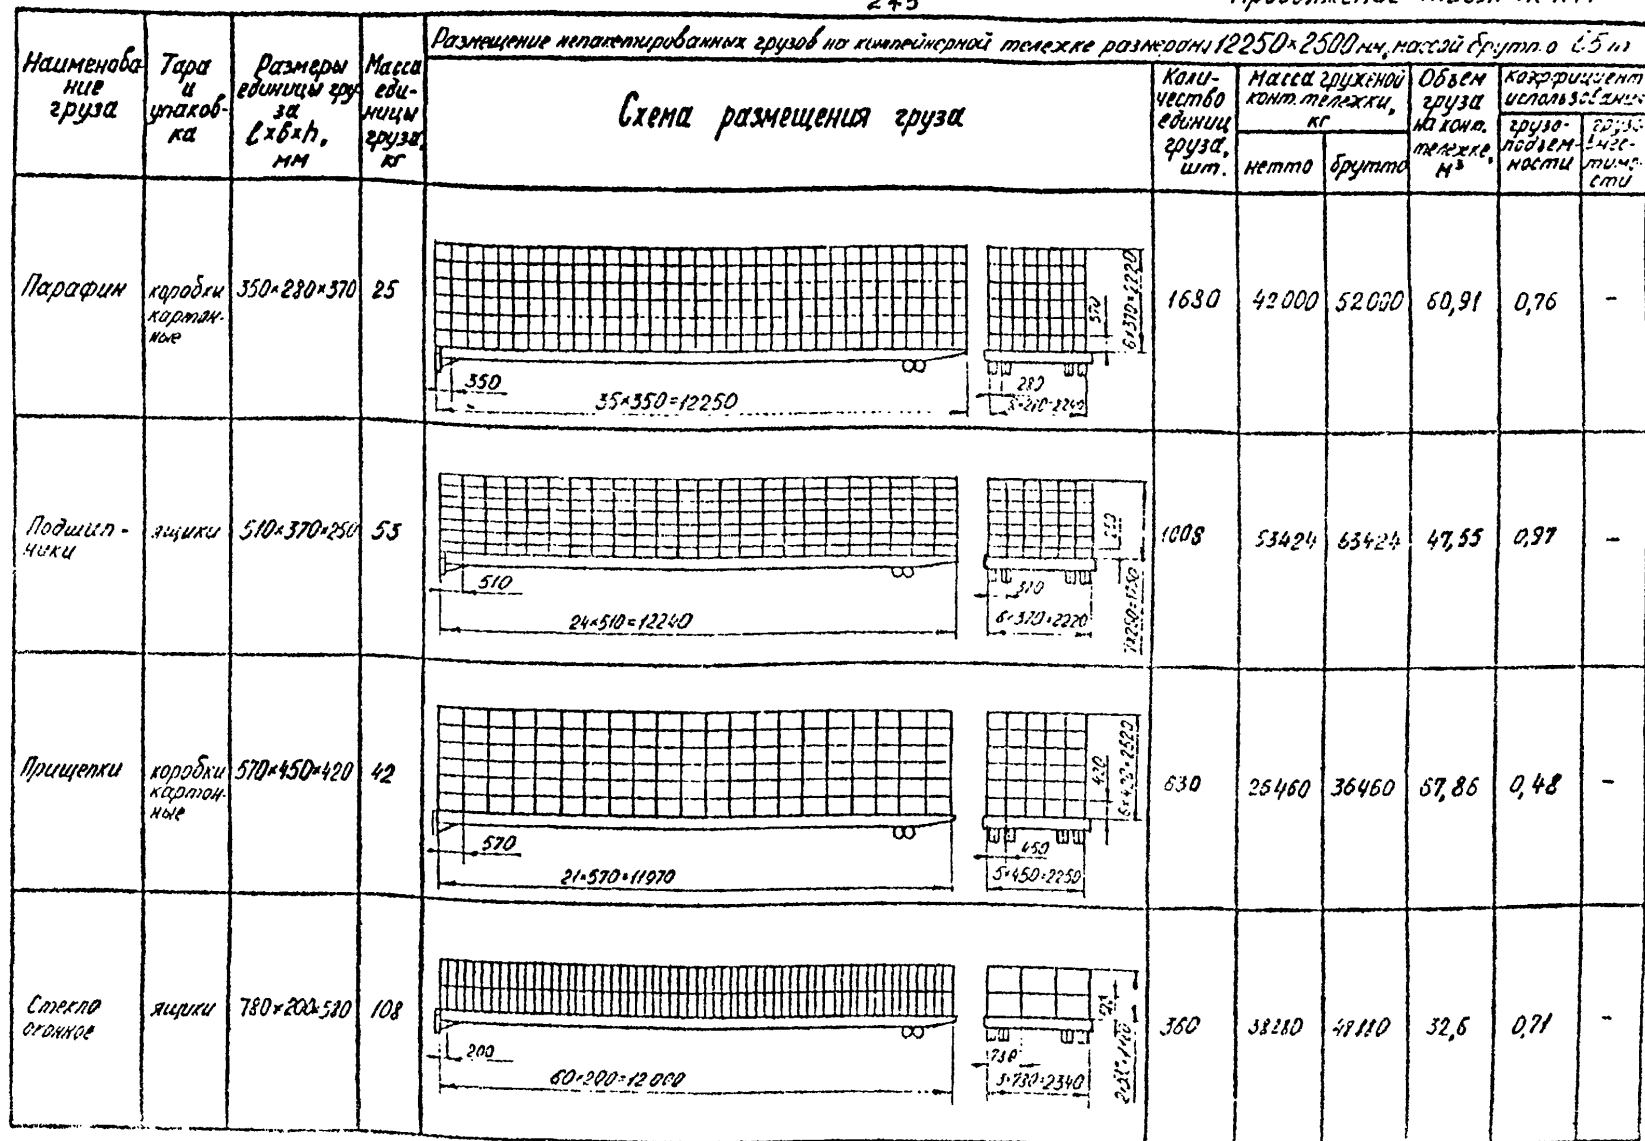 245
Наименова-
ние
груза
Тара
и
упаков-
ка
Размеры
единицы гру-
за
l×b×h,
мм
Масса
еди-
ницы
груза,
кг
Размещение непакетированных грузов на контейнерной тележке размерами 12250×2500 мм, массой брутто
Схема размещения груза
Коли-
чество
единиц
груза,
шт.
Масса груженой
конт. тележки,
кг
нетто
брутто
Объем
груза
на конт.
тележке,
м³
Коэффициент
использования
грузо-
подъем-
ности
Парафин
коробки
картон-
ные
350×280×370
25
350
35×350=12250
280
370
6×370=2220
1680
42000
52000
60,91
0,76
-
Подшип-
ники
ящики
510×370×250
53
510
24×510=12240
370
6×370=2220
7×250=1750
1008
53424
63424
47,55
0,97
-
Прищепки
коробки
картон-
ные
570×450×420
42
570
21×570=11970
450
5×450=2250
420
6×420=2520
630
26460
36460
67,86
0,48
-
Стекло
оконное
ящики
108
200
60×200=12000
780
3×780=2340
360
32,6
0,71
-